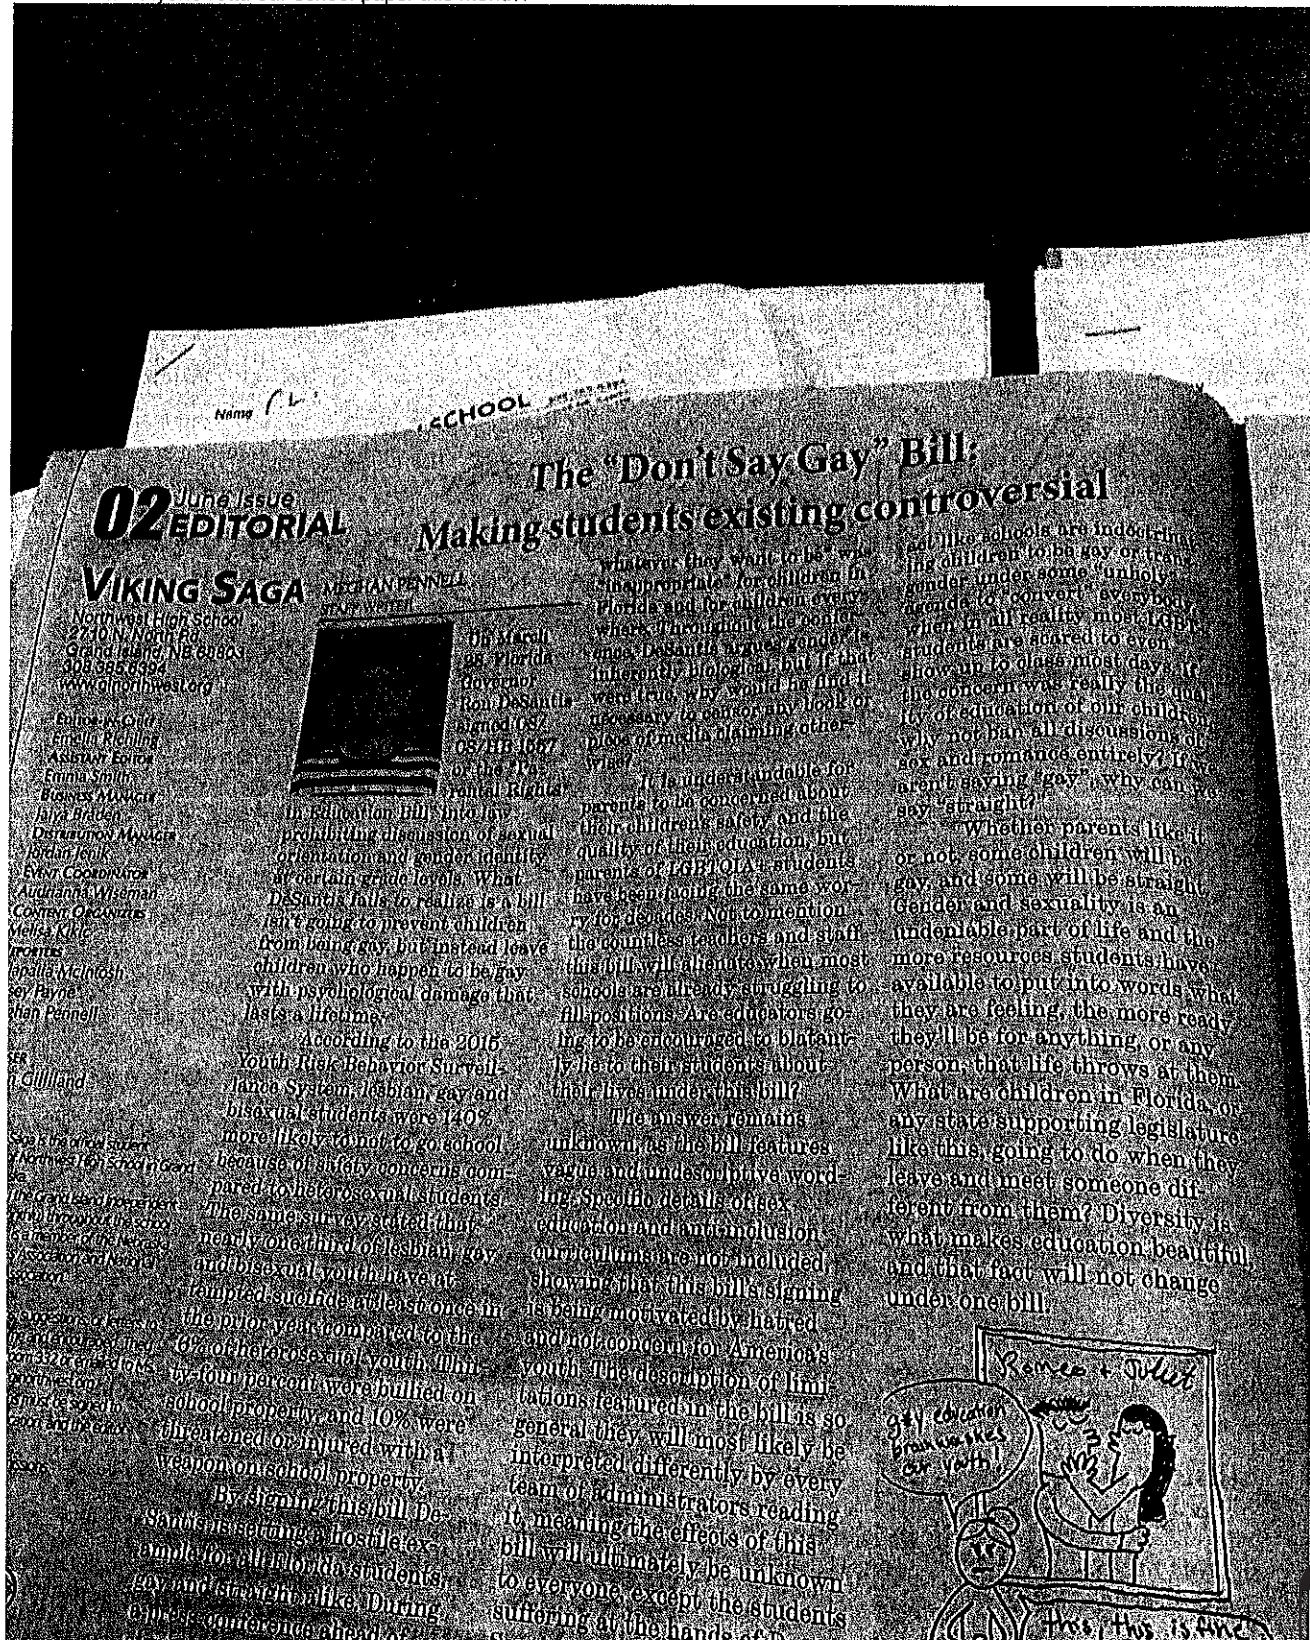 our school paper this month
Name
SCHOOL
02 June Issue
EDITORIAL
The "Don't Say Gay" Bill:
Making students existing controversial
VIKING SAGA
Northwest High School
2710 N. North Rd.
Grand Island, NE 68803
308.385.6394
www.ginorthwest.org
EDITOR-IN-CHIEF
Emelia Richling
ASSISTANT EDITOR
Emma Smith
BUSINESS MANAGER
DISTRIBUTION MANAGER
Jordan
EVENT COORDINATOR
Audrianna Wiseman
CONTENT ORGANIZERS
Melisa Kikic
McIntosh
Payne
Pennell
Gilliland
Saga is the official student
Northwest High School in Grand
the Grand Island Independent
throughout the school
is a member of the Nebraska
Association and National
MEGHAN PENNELL
STAFF WRITER
On March
28, Florida
Governor
Ron DeSantis
signed
1557
or the "Pa-
rental Rights
in Education Bill" into law
prohibiting discussion of sexual
orientation and gender identity
at certain grade levels. What
DeSantis fails to realize is a bill
isn't going to prevent children
from being gay, but instead leave
children who happen to be gay
with psychological damage that
lasts a lifetime.
According to the 2015
Youth Risk Behavior Surveil-
lance System, lesbian, gay and
bisexual students were 140%
more likely to not to go school
because of safety concerns com-
pared to heterosexual students.
The same survey stated that
nearly one third of lesbian, gay
and bisexual youth have at-
tempted sucifide at least once in
the prior year compared to the
6% of heterosexual youth. Thir-
ty-four percent were bullied on
school property, and 10% were
threatened or injured with a
weapon on school property.
By signing this bill De-
Santis is setting a hostile ex-
ample for all Florida students,
gay and straight alike. During
a press conference ahead of
whatever they want to be" was
"inappropriate" for children in
Florida and for children every-
where. Throughout the confer-
ence, DeSantis argues gender is
inherently biological, but if that
were true, why would he find it
necessary to censor any book or
piece of media claiming other-
wise?
It is understandable for
parents to be concerned about
their children's safety and the
quality of their education, but
parents of LGBTQIA+ students
have been facing the same wor-
ry for decades. Not to mention
the countless teachers and staff
this bill will alienate when most
schools are already struggling to
fill positions. Are educators go-
ing to be encouraged to blatant-
ly lie to their students about
their lives under this bill?
The answer remains
unknown, as the bill features
vague and undescriptive word-
ing. Specific details of sex
education and anti-inclusion
curriculums are not included,
showing that this bill's signing
is being motivated by hatred
and not concern for America's
youth. The description of limi-
tations featured in the bill is so
general they will most likely be
interpreted differently by every
team of administrators reading
it, meaning the effects of this
bill will ultimately be unknown
to everyone, except the students
suffering at the hands of
act like schools are indoctrinat-
ing children to be gay or trans-
gender under some "unholy"
agenda to "convert" everybody,
when in all reality most LGBT
students are scared to even
show up to class most days. If
the concern was really the qual-
ity of education of our children,
why not ban all discussions of
sex and romance entirely? If we
aren't saying "gay", why can we
say "straight?"
Whether parents like it
or not, some children will be
gay, and some will be straight.
Gender and sexuality is an
undeniable part of life and the
more resources students have
available to put into words what
they are feeling, the more ready
they'll be for anything, or any
person, that life throws at them.
What are children in Florida, or
any state supporting legislature
like this, going to do when they
leave and meet someone dif-
ferent from them? Diversity is
what makes education beautiful,
and that fact will not change
under one bill.
Romeo + Juliet
gay education
brainwashes
our youth!
this, this is fine